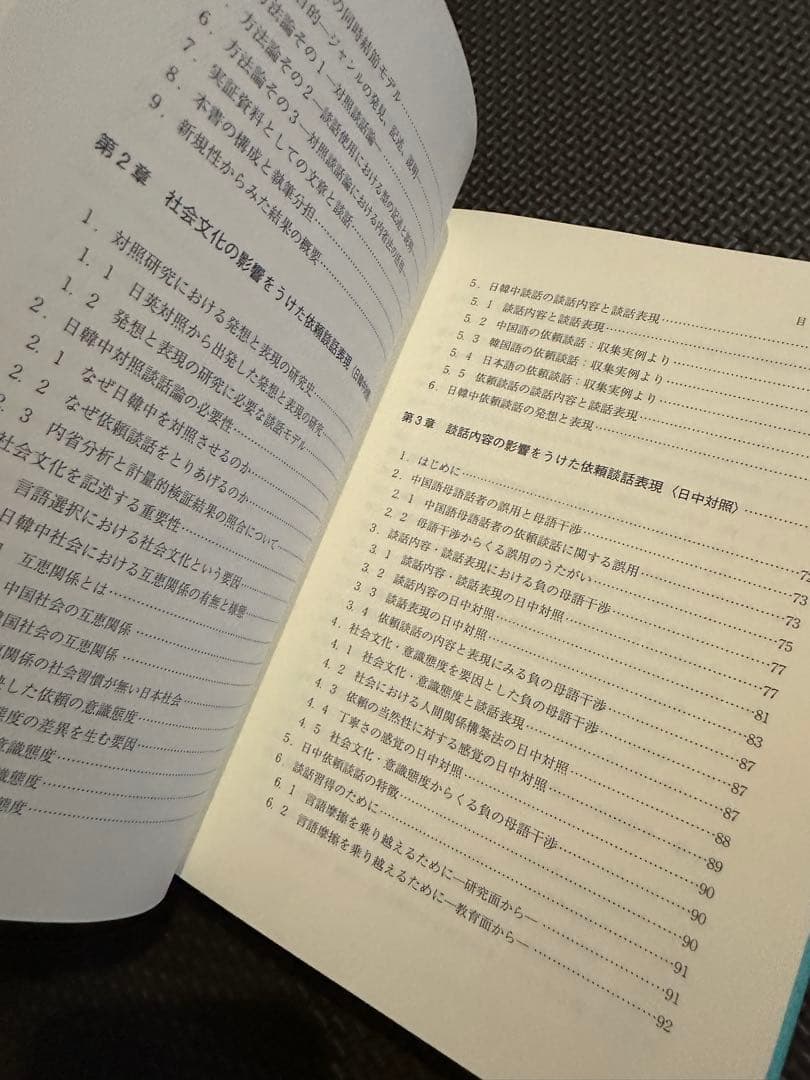 の同時結節モデル
目的―ジャンルの発見、記述、説明―
方法論その1―対照談話論―
6. 方法論その2―談話使用における
7. 方法論その3―対照談話論における内省法の活用―
8. 実証資料としての文章と談話
9. 本書の構成と執筆分担
新規性からみた結果の概要
第2章 社会文化の影響をうけた依頼談話表現〈日韓中対照
1. 対照研究における発想と表現の研究史
1.1 日英対照から出発した発想と表現の研究
1.2 発想と表現の研究に必要な談話モデル
2. 日韓中対照談話論の必要性
2.1 なぜ日韓中を対照させるのか
2.2 なぜ依頼談話をとりあげるのか
2.3 内省分析と計量的検証結果の照合について
社会文化を記述する重要性
言語選択における社会文化という要因
日韓中社会における互恵関係の有無と様態
互恵関係とは
中国社会の互恵関係
韓国社会の互恵関係
互恵関係の社会習慣が無い日本社会
した依頼の意識態度
態度の差異を生む要因
意識態度
意識態度
態度
目
5. 日韓中談話の談話内容と談話表現
5.1 談話内容と談話表現
5.2 中国語の依頼談話:収集実例より
5.3 韓国語の依頼談話:収集実例より
5.4 日本語の依頼談話:収集実例より
5.5 依頼談話の談話内容と談話表現
6. 日韓中依頼談話の発想と表現
第3章 談話内容の影響をうけた依頼談話表現〈日中対照〉
1. はじめに
2. 中国語母語話者の誤用と母語干渉
2.1 中国語母語話者の依頼談話に関する誤用 73
2.2 母語干渉からくる誤用のうたがい 73
3. 談話内容・談話表現における負の母語干渉 75
3.1 談話内容・談話表現の日中対照 77
3.2 談話内容の日中対照 77
3.3 談話表現の日中対照 81
3.4 依頼談話の内容と表現にみる負の母語干渉 83
4. 社会文化・意識態度を要因とした負の母語干渉 87
4.1 社会文化・意識態度と談話表現 87
4.2 社会における人間関係構築法の日中対照 87
4.3 依頼の当然性に対する感覚の日中対照 88
4.4 丁寧さの感覚の日中対照 89
4.5 社会文化・意識態度からくる負の母語干渉 90
5. 日中依頼談話の特徴 90
6. 談話習得のために 90
6.1 言語摩擦を乗り越えるために―研究面から― 91
6.2 言語摩擦を乗り越えるために―教育面から― 91
92